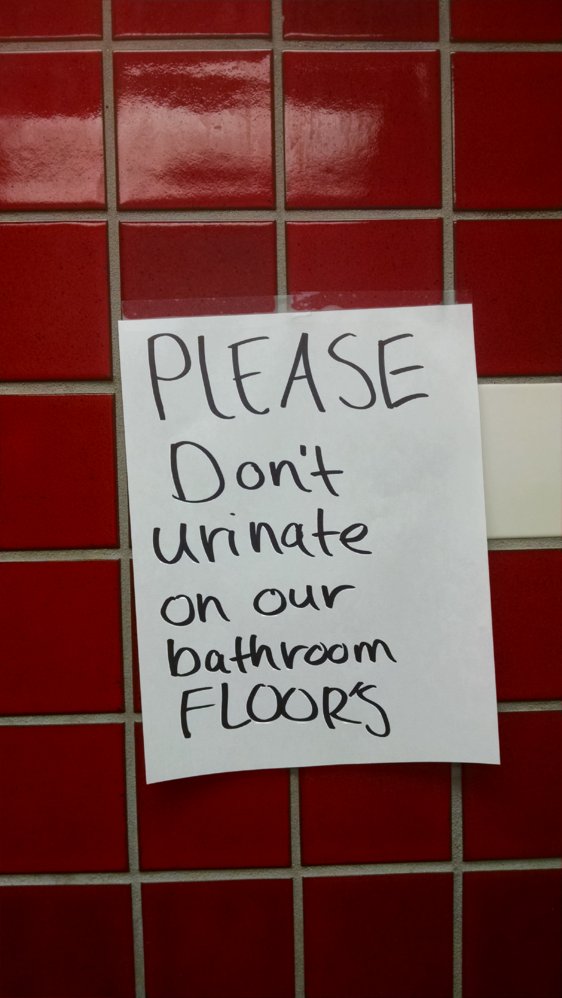 PLEASE
Don't
urinate
on our
bathroom
FLOOR'S